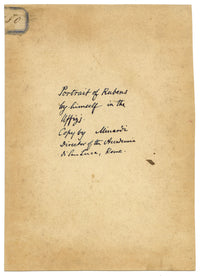 50
Portrait of Rubens
by himself in the
Uffizj
Copy by Minardi
Director of the Academia
di San Luca, Rome.